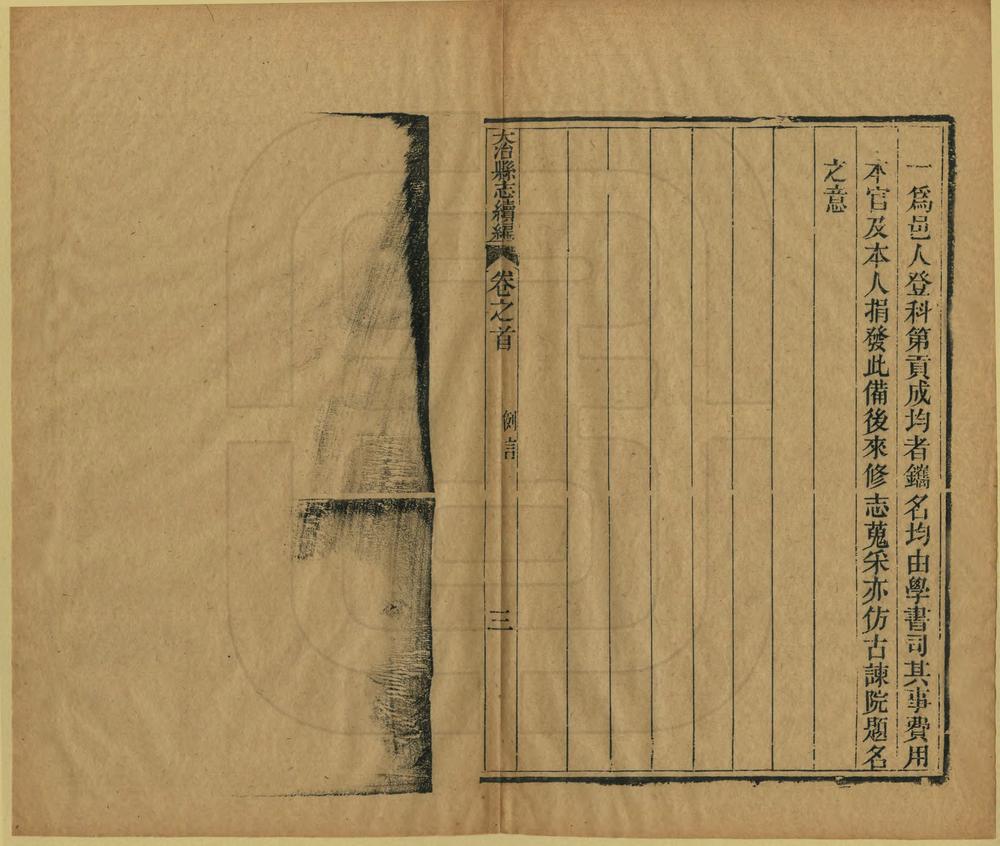 一爲邑人登科第貢成均者鐫名均由學書司其事費用
本官及本人捐發此備後來修志蒐采亦仿古諫院題名
之意
大冶縣志續編 卷之首 例言 三